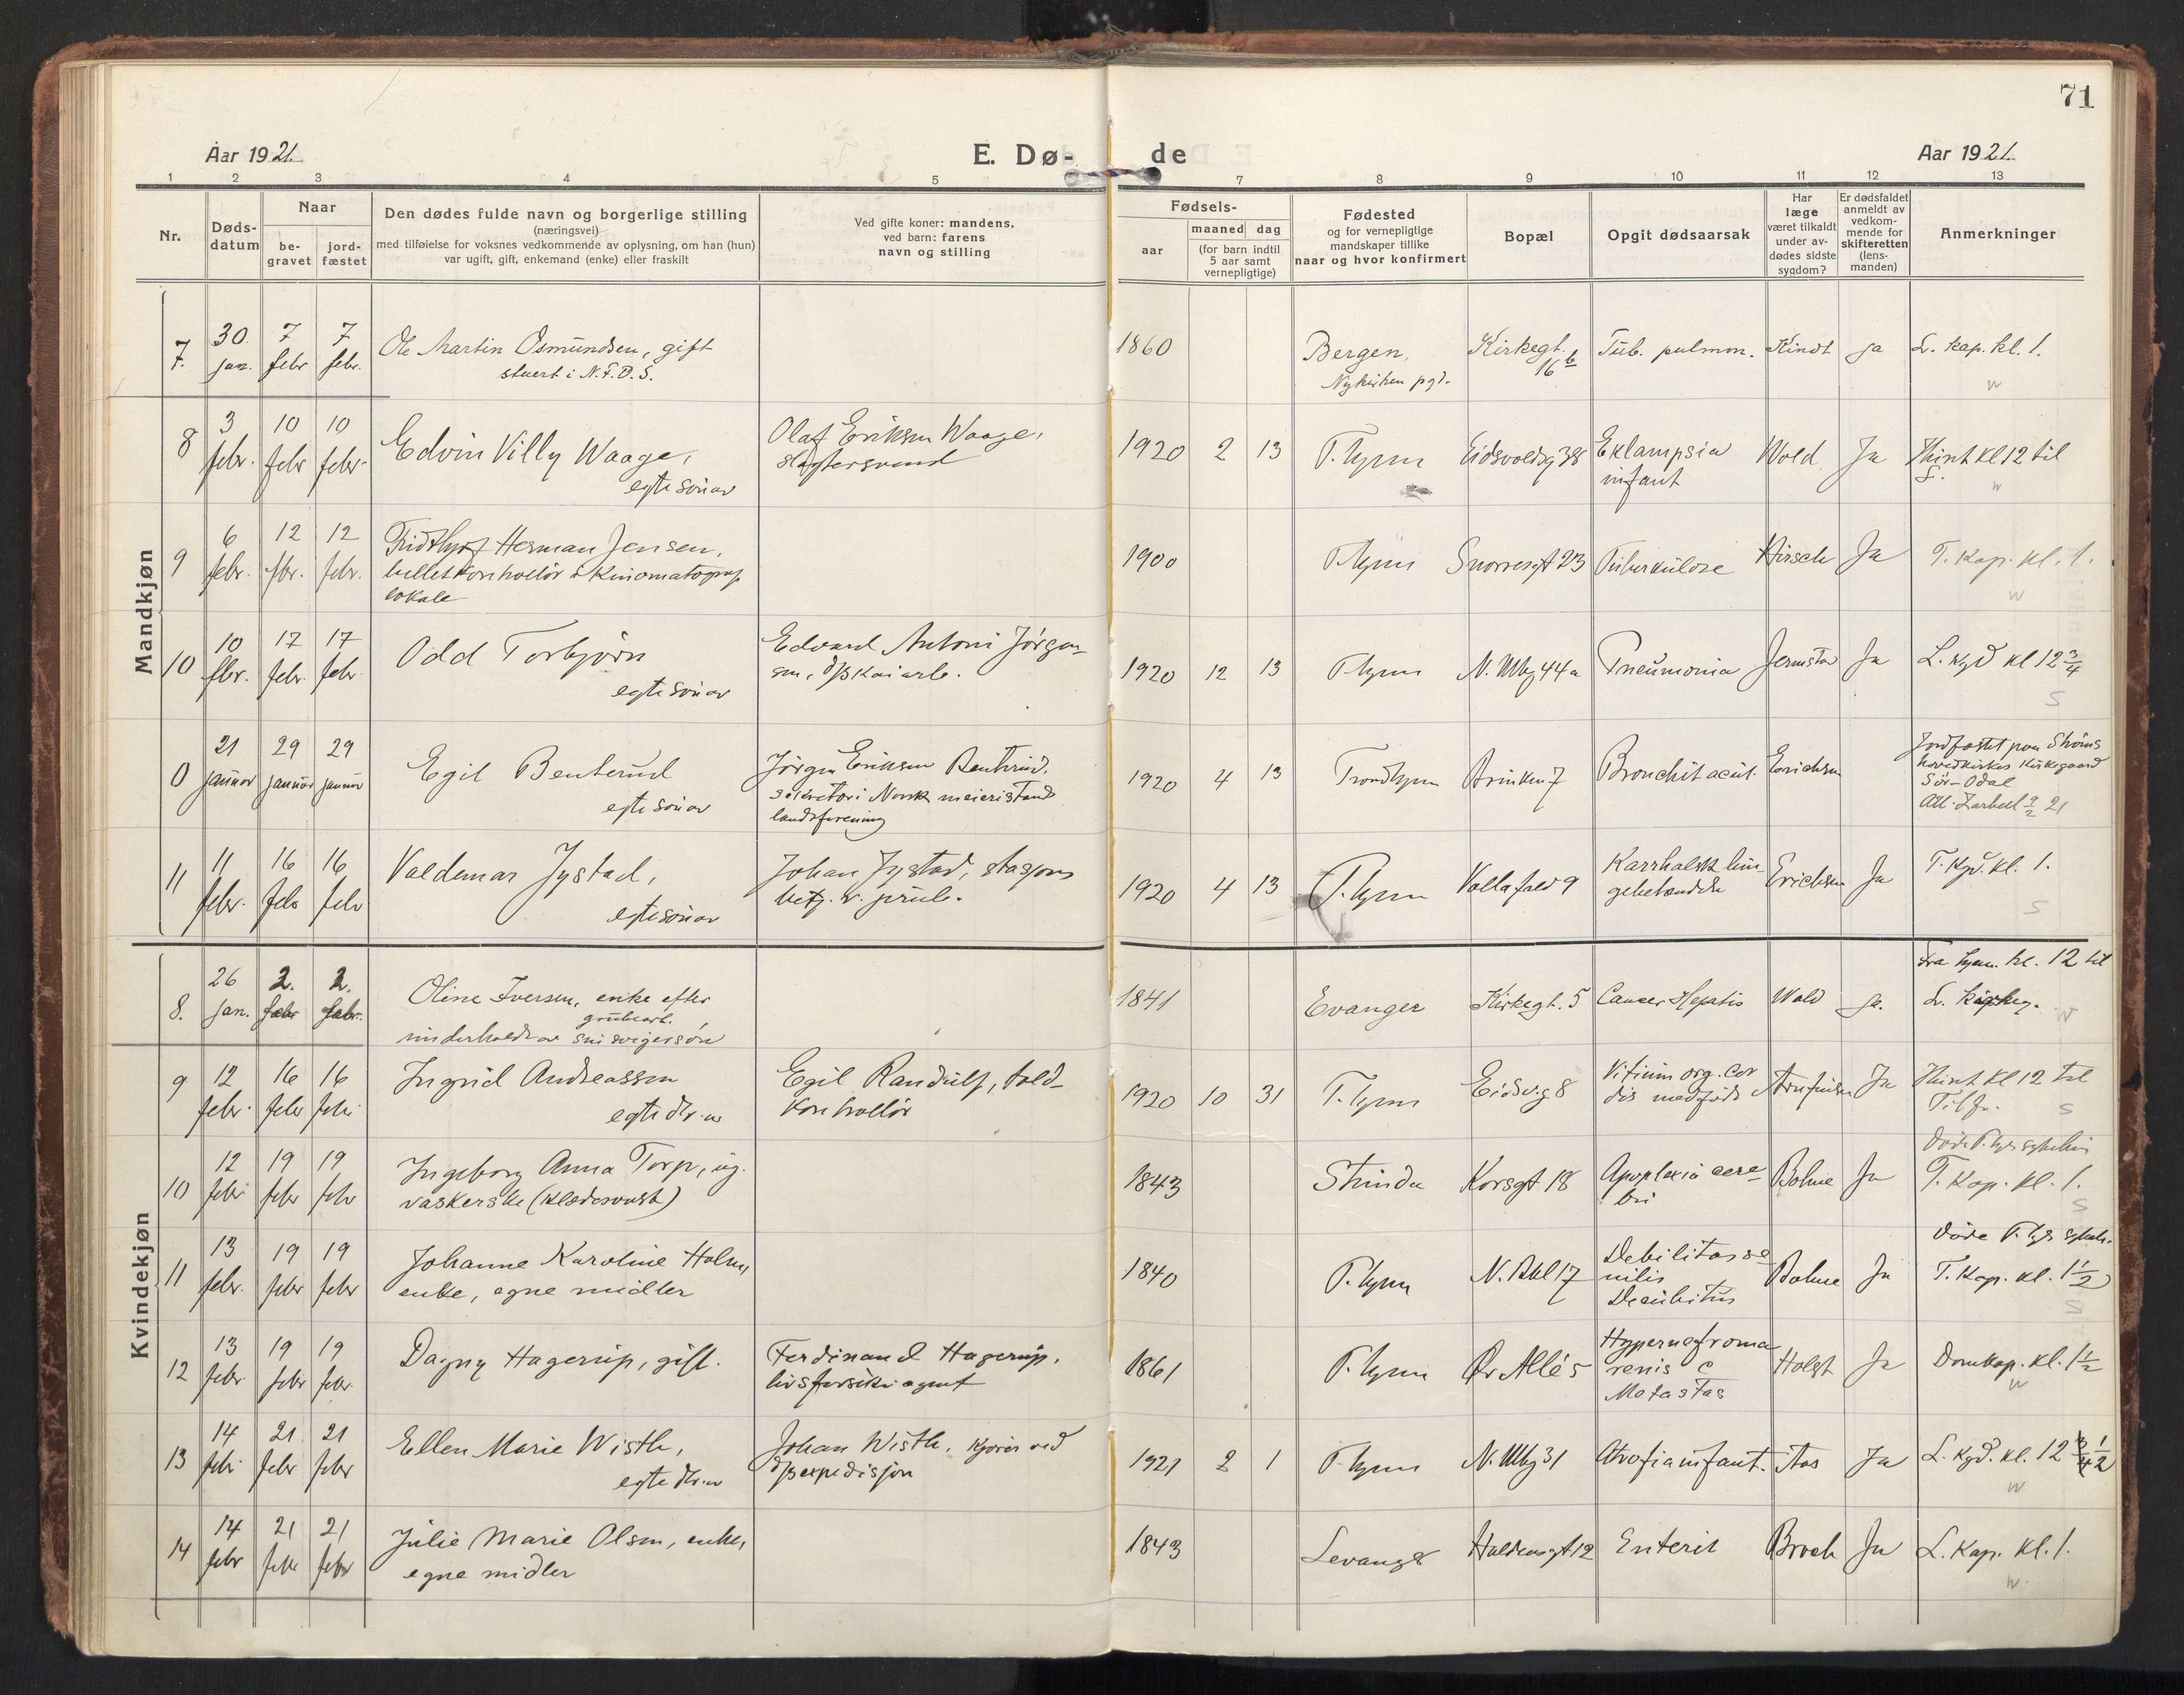 71
Aar 1921.
E. Dø-
de
Aar 1921.
1 2 3 4 5 7 8 9 10 11 12 13
Nr.
Døds-
datum
Naar
be-
gravet
jord-
fæstet
Den dødes fulde navn og borgerlige stilling
(næringsvei)
med tilføielse for voksnes vedkommende av oplysning, om han (hun)
var ugift, gift, enkemand (enke) eller fraskilt
Ved gifte koner: mandens,
ved barn: farens
navn og stilling
Fødsels-
aar
maaned dag
(for barn indtil
5 aar samt
vernepligtige)
Fødested
og for vernepligtige
mandskaper tillike
naar og hvor konfirmert
Bopæl
Opgit dødsaarsak
Har
læge
været tilkaldt
under av-
dødes sidste
sygdom?
Er dødsfaldet
anmeldt av
vedkom-
mende for
skifteretten
(lens-
manden)
Anmerkninger
Mandkjøn
7. 30. jan. 7 febr 7 febr. Ole Martin Osmundsen, gift
stuert i N.F.D.S.
1860 Bergen,
Nykirken pgd.
Kirkegt. 16 b Tub. pulmon. Kindt ja L. kap. kl. 1.
w
8 3 febr. 10 febr 10 febr. Edvin Villy Waage,
egte sön av
Olaf Eriksen Waage,
slagtersvend
1920 2 13 T.hjem Eidsvoldsg 38 Eklampsia
infant
Wold Ja Hint kl 12 til
L.
w
9 6 febr. 12 fbr. 12 febr. Fridthjof Herman Jensen,
billetkontrollör i Kinomatograf
lokale
1900 T.hjem Snorresgt 23 Tuberkulose Hirsch Ja T. Kap. kl. 1.
w
10 10 fbr. 17 febr. 17 febr Odd Torbjörn
egte sön av
Edvard Antoni Jörgen-
sen, d/s kaiarb.
1920 12 13 T.hjem N. Mbg 44a Pneumonia Jermstad Ja L. kgd kl 12 3/4
S
0 21 januar 29 januar 29 januar Egil Benterud
egte sön av
Jörgen Eriksen Benterud,
sekretær i Norsk meieristands
landsforening
1920 4 13 Trondhjem Brinken 7 Bronchit acut. Erichsen Jordfæstet paa Ströms
hovedkirkes kirkegaard
Sör-Odal
11 11 febr. 16 febr 16 febr Valdemar Jystad,
egte sön av
Johan Jystad, stasjons
betj. v. prüb.
1920 4 13 T.hjem Vollafald 9 Erichsen Ja T. Kgd. kl. 1.
S
Kvindekjøn
8. 26 jan. 2. febr 2. febr. Oline Iversen, enke efter
grubearb.
underholdt av sin svigersön
1841 Evanger Kirkegt. 5 Cancer Hepatis Wold ja.
Fra hjem. kl. 12 til
w
9 12 febr. 16 febr 16 febr Ingrid Andreassen
egte dtr. av
Egil Randulf, told-
kontrollör
1920 10 31 T.hjem Eidsv.g 8 Vitium org. cor
dis medfödt
Arnfinsen Ja Hint kl 12 til
S
10 12 febr 19 febr 19 febr Ingeborg Anna Torp, ug.
vaskerske (klædesvask)
1843 Strinda Korsgt 18 Apoplexia cere-
bri
Bohne Ja T. Kap. kl. 1.
S
11 13 febr. 19 febr 19 febr Johanne Karoline Holm,
enke, egne midler
1840 T.hjem N. Bkl 17 Debilitas se
nilis
Decubitus
Bohne Ja T. Kap. kl. 1 1/2
S
12 13 febr. 19 febr 19 febr. Dagny Hagerup, gift.
Ferdinand Hagerup,
livsforsikr. agent
1861 T.hjem Ør Allé 5 Hypernefroma
renis c
Metastas
Holst Ja Domkap. kl. 1 1/2
w
13 14 febr 21 febr 21 febr Ellen Marie Wisth,
egte dtr. av
Johan Wisth, kjörer ved
d/s expedisjon
1921 2 1 T.hjem N. Mbg 31 Atrofia infant. Aas Ja L. Kgd. kl. 12 1/2
w
14 14 febr 21 febr 21 febr Julie Marie Olsen, enke,
egne midler
1843 Levanger Haldensgt 12 Enterit Broch Ja L. Kap. kl. 1.
w.